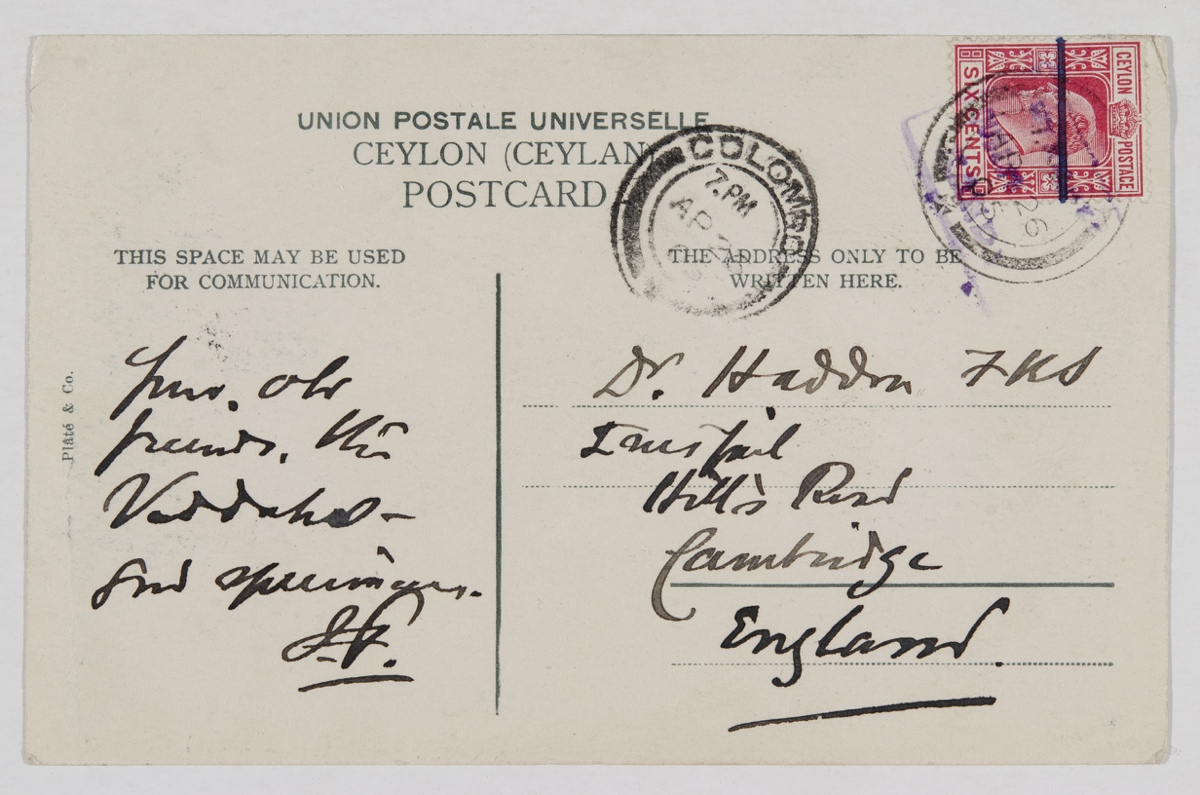 UNION POSTALE UNIVERSELLE
CEYLON (CEYLAN
POSTCARD
CEYLON POSTAGE
SIX CENTS
COLOMBO
7. PM
AP
THIS SPACE MAY BE USED
FOR COMMUNICATION.
THE ADDRESS ONLY TO BE
WRITTEN HERE.
Plâté & Co.
old
friends, the
Veddahs –
good specimens.
Dr. Haddon FRS
Innisfail
Hills Road
Cambridge
England.